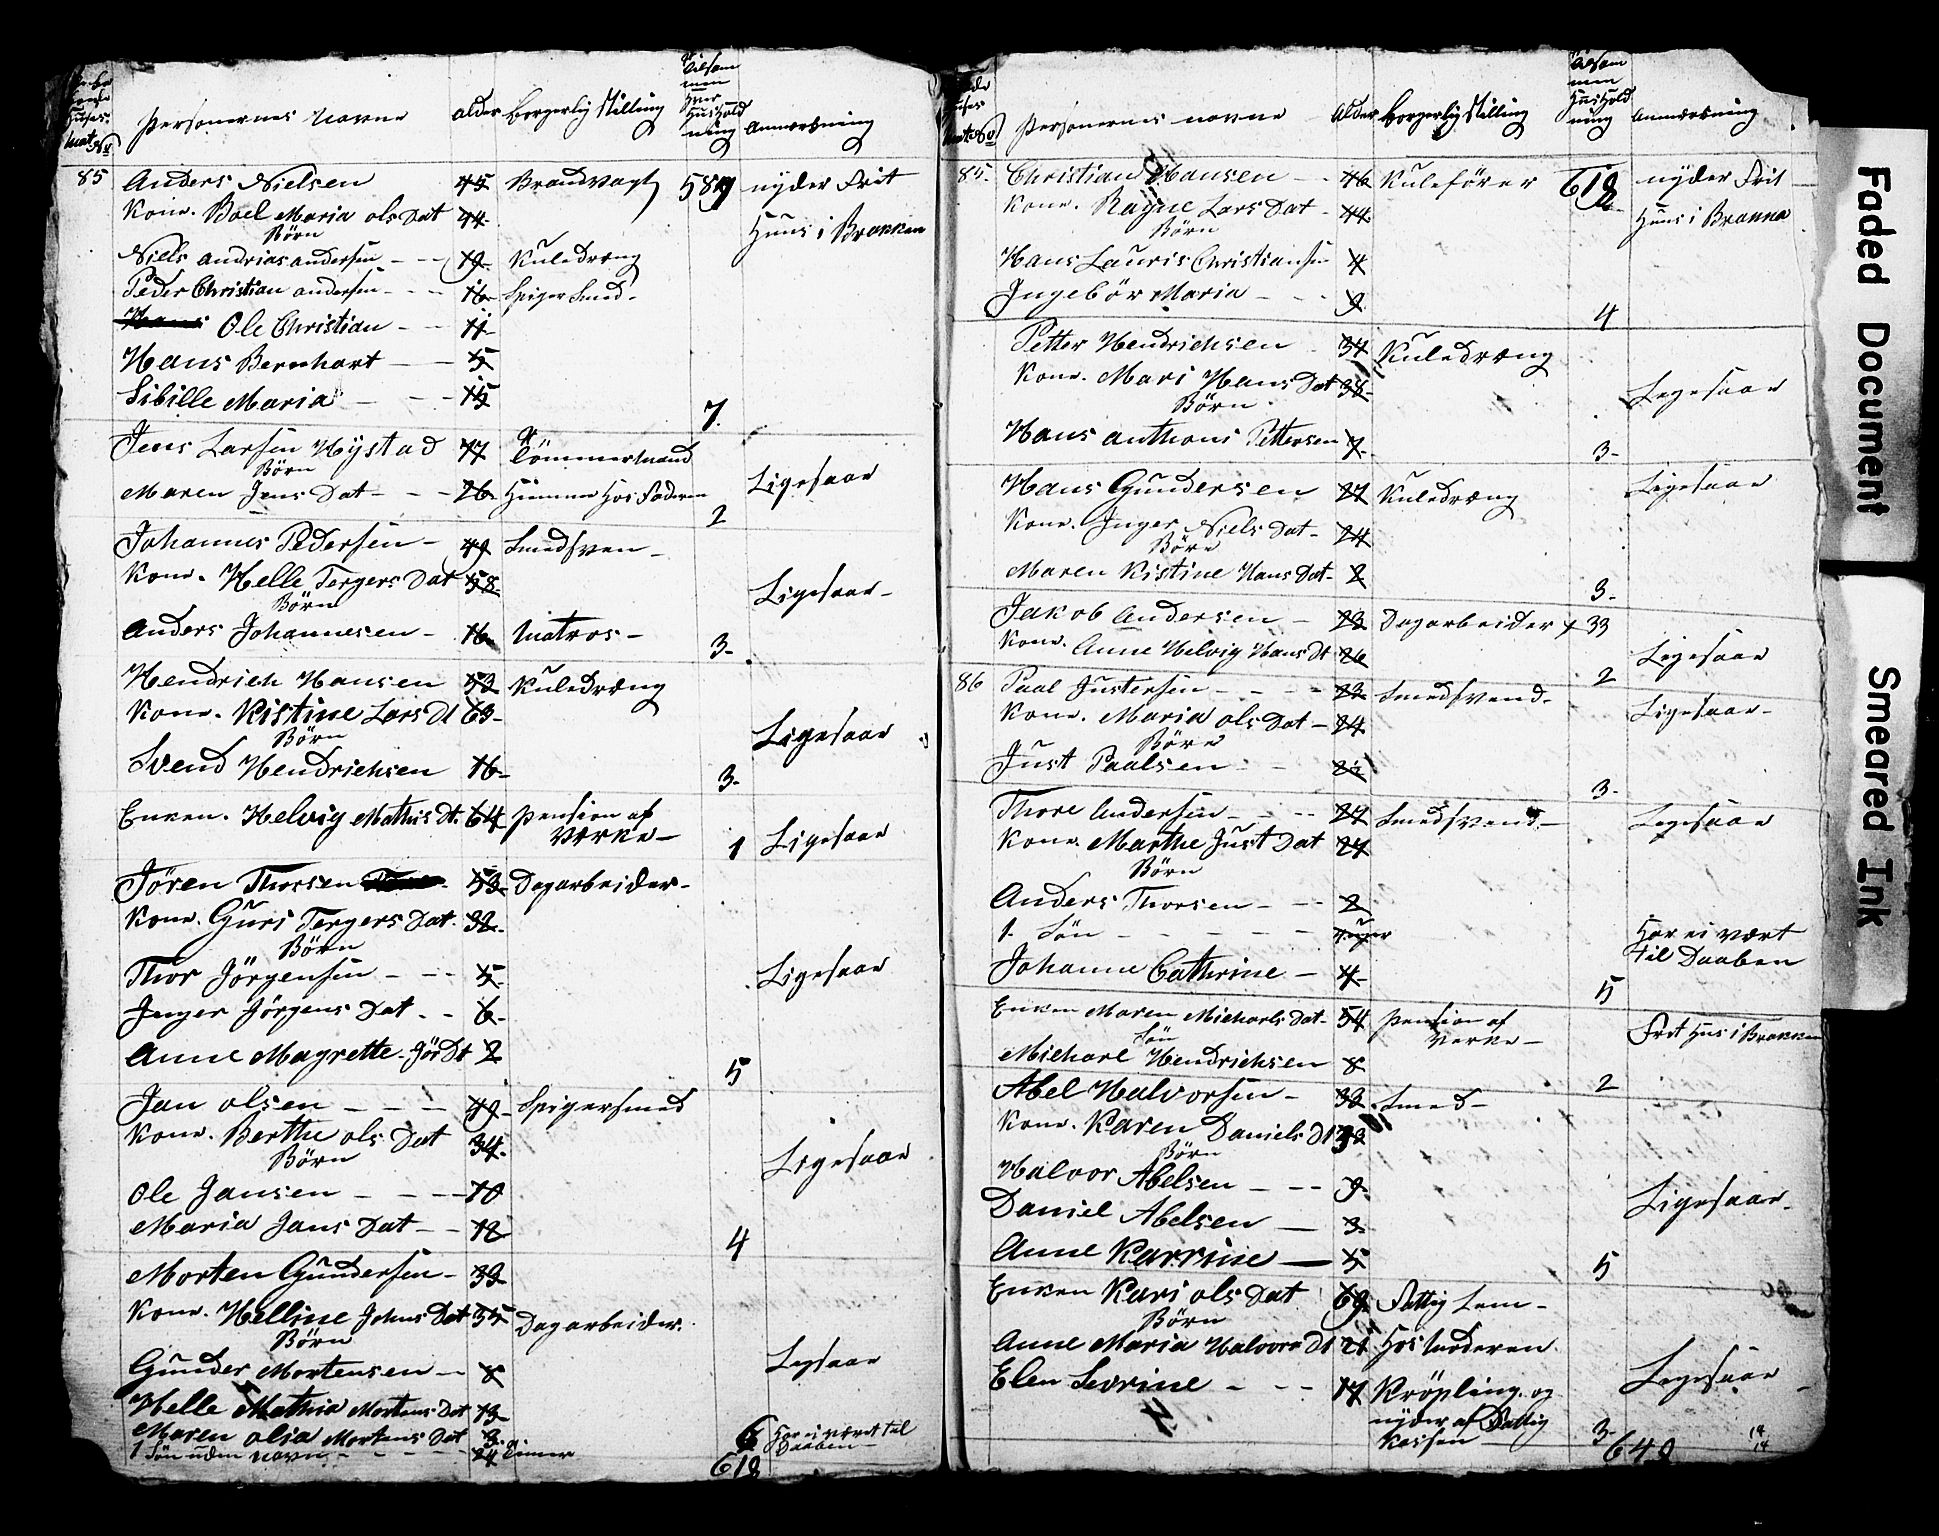 Huuses
Mat No
Personernes Navne
alder
borgerlig Stilling
Tilsam
men
Hver
Huushold
ning
Anmærkning
85 Anders Nielsen 45 Brandvagt 587 nyder Frit
Kone. Boel Maria Ols Dat 44 Huus i Brakken
Börn
Niels Andrias Andersen 19 Kuledræng
Peder Christian Andersen 16 Spiger Smed
Ole Christian 11
Hans Bernhart 5
Sibille Maria 15
7.
Jens Larsen Hÿstad 77 Tömmermand
Börn
Maren Jens Dat 26 Hiemme Hos Faderen Ligesaar
2
Johannes Pedersen 49 Smedsven
Kone. Helle Tergers Dat 58 Ligesaar
Börn
Anders Johannesen 16 Matros
3
Hendrich Hansen 53 Kuledræng
Kone. Kistine Lars Dt 63
Börn
Ligesaar
Svend Hendrichsen 16
3
Enken. Helvig Mathis Dt. 64 Pension af
Værke
1 Ligesaar
Jören Thorsen 53 Dagarbeider
Kone. Guri Tergers Dat. 32
Börn
Thor Jörgensen 5 Ligesaar
Inger Jörgens Dat 6
Anne Magrette Jör Dt 2
5
Jan Olsen 49 Spigersmed
Kone. Berthe Ols Dat 34
Börn
Ligesaar
Ole Jansen 10
Maria Jans Dat 12
4
Morten Gundersen 39
Kone. Helline Johns Dat 35 Dagarbeider.
Börn
Gunder Mortensen 8 Ligsaar
Helle Mathia Mortens Dat 13
Maren Olia Mortens Dat 3 6 Har ei været til
1 Sön uden Navn 24 Timer Daaben
618
Huses
Mat No
Personernes Navne
Alder
borgerlig Stilling
Tilsam
men
Huushold
ning
Anmærkning
85. Christian Hansen 46 Kuleförer 618 nyder Frit
Kone. Ragne Lars Dat 44 Huus i Brakke
Börn
Hans Lauris Christiansen 4
Ingebör Maria 9
4
Petter Hendrichsen 34 Kuledræng
Kone. Mari Hans Dat 38 Ligesaar
Börn
Hans Anthoni Pettersen 7
3
Hans Gundersen 27 Kuledræng Ligesaar
Kone. Inger Niels Dat 24
Börn
Maren Kistine Hans Dat 2
3
Jakob Andersen 23 Dagarbeider 33
Kone. Anne Helvig Hans Dt 26 Ligesaar
2
86 Paal Justersen 23 Smedsvend
Kone. Maria Ols Dat 24 Ligesaar
Börn
Just Paalsen
3
Thore Andersen 27 Smedsvend Ligesaar
Kone. Marthe Just Dat 27
Börn
Anders Thorsen 2
1 Sön Har ei vært
til Daaben
Johanne Cathrine 4
5
Enken Maren Michaels Dat 54 Pension af Frit Hus i Brakken
Sön Verke
Michael Hendrichsen 8
2
Abel Halvorsen 33 Smed
Kone. Karen Daniels Dt
Börn
Halvor Abelsen 9
Daniel Abelsen 3 Ligesaar
Anne Karrine 5
5
Enken Kari Ols Dat 69 Fattig Lem
Börn
Anne Maria Halvors Dt 21 Hos Moderen
Ligesaar
Elen Sevrine 17 Kröpling og
nyder af Fattig
Kassen
3
649
14
14
Faded Document
Smeared Ink